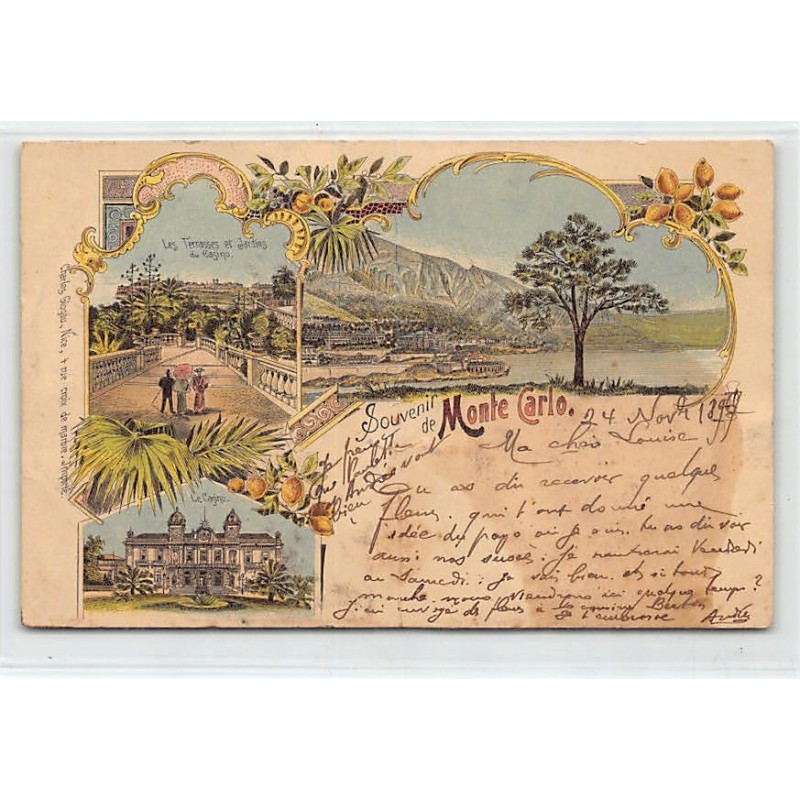 Les Terrasses et Jardins
du Casino.
Souvenir
de Monte Carlo.
Le Casino.
Charles Giorgas, Nice, 4 rue croix de marbre.
24 Novb 189
Ma chère Louise
Tu as dû recevoir quelques
fleurs qui t'ont donné une
idée du pays où je suis, tu as dû voir
aussi nos succès. Je rentrerai Vendredi
ou Samedi. Je vais bien, et si tout
marche, nous viendrons ici quelque temps?
j'ai envoyé de fleurs à les cousins
Je t'embrasse André
Je pense
que
André vont
bien